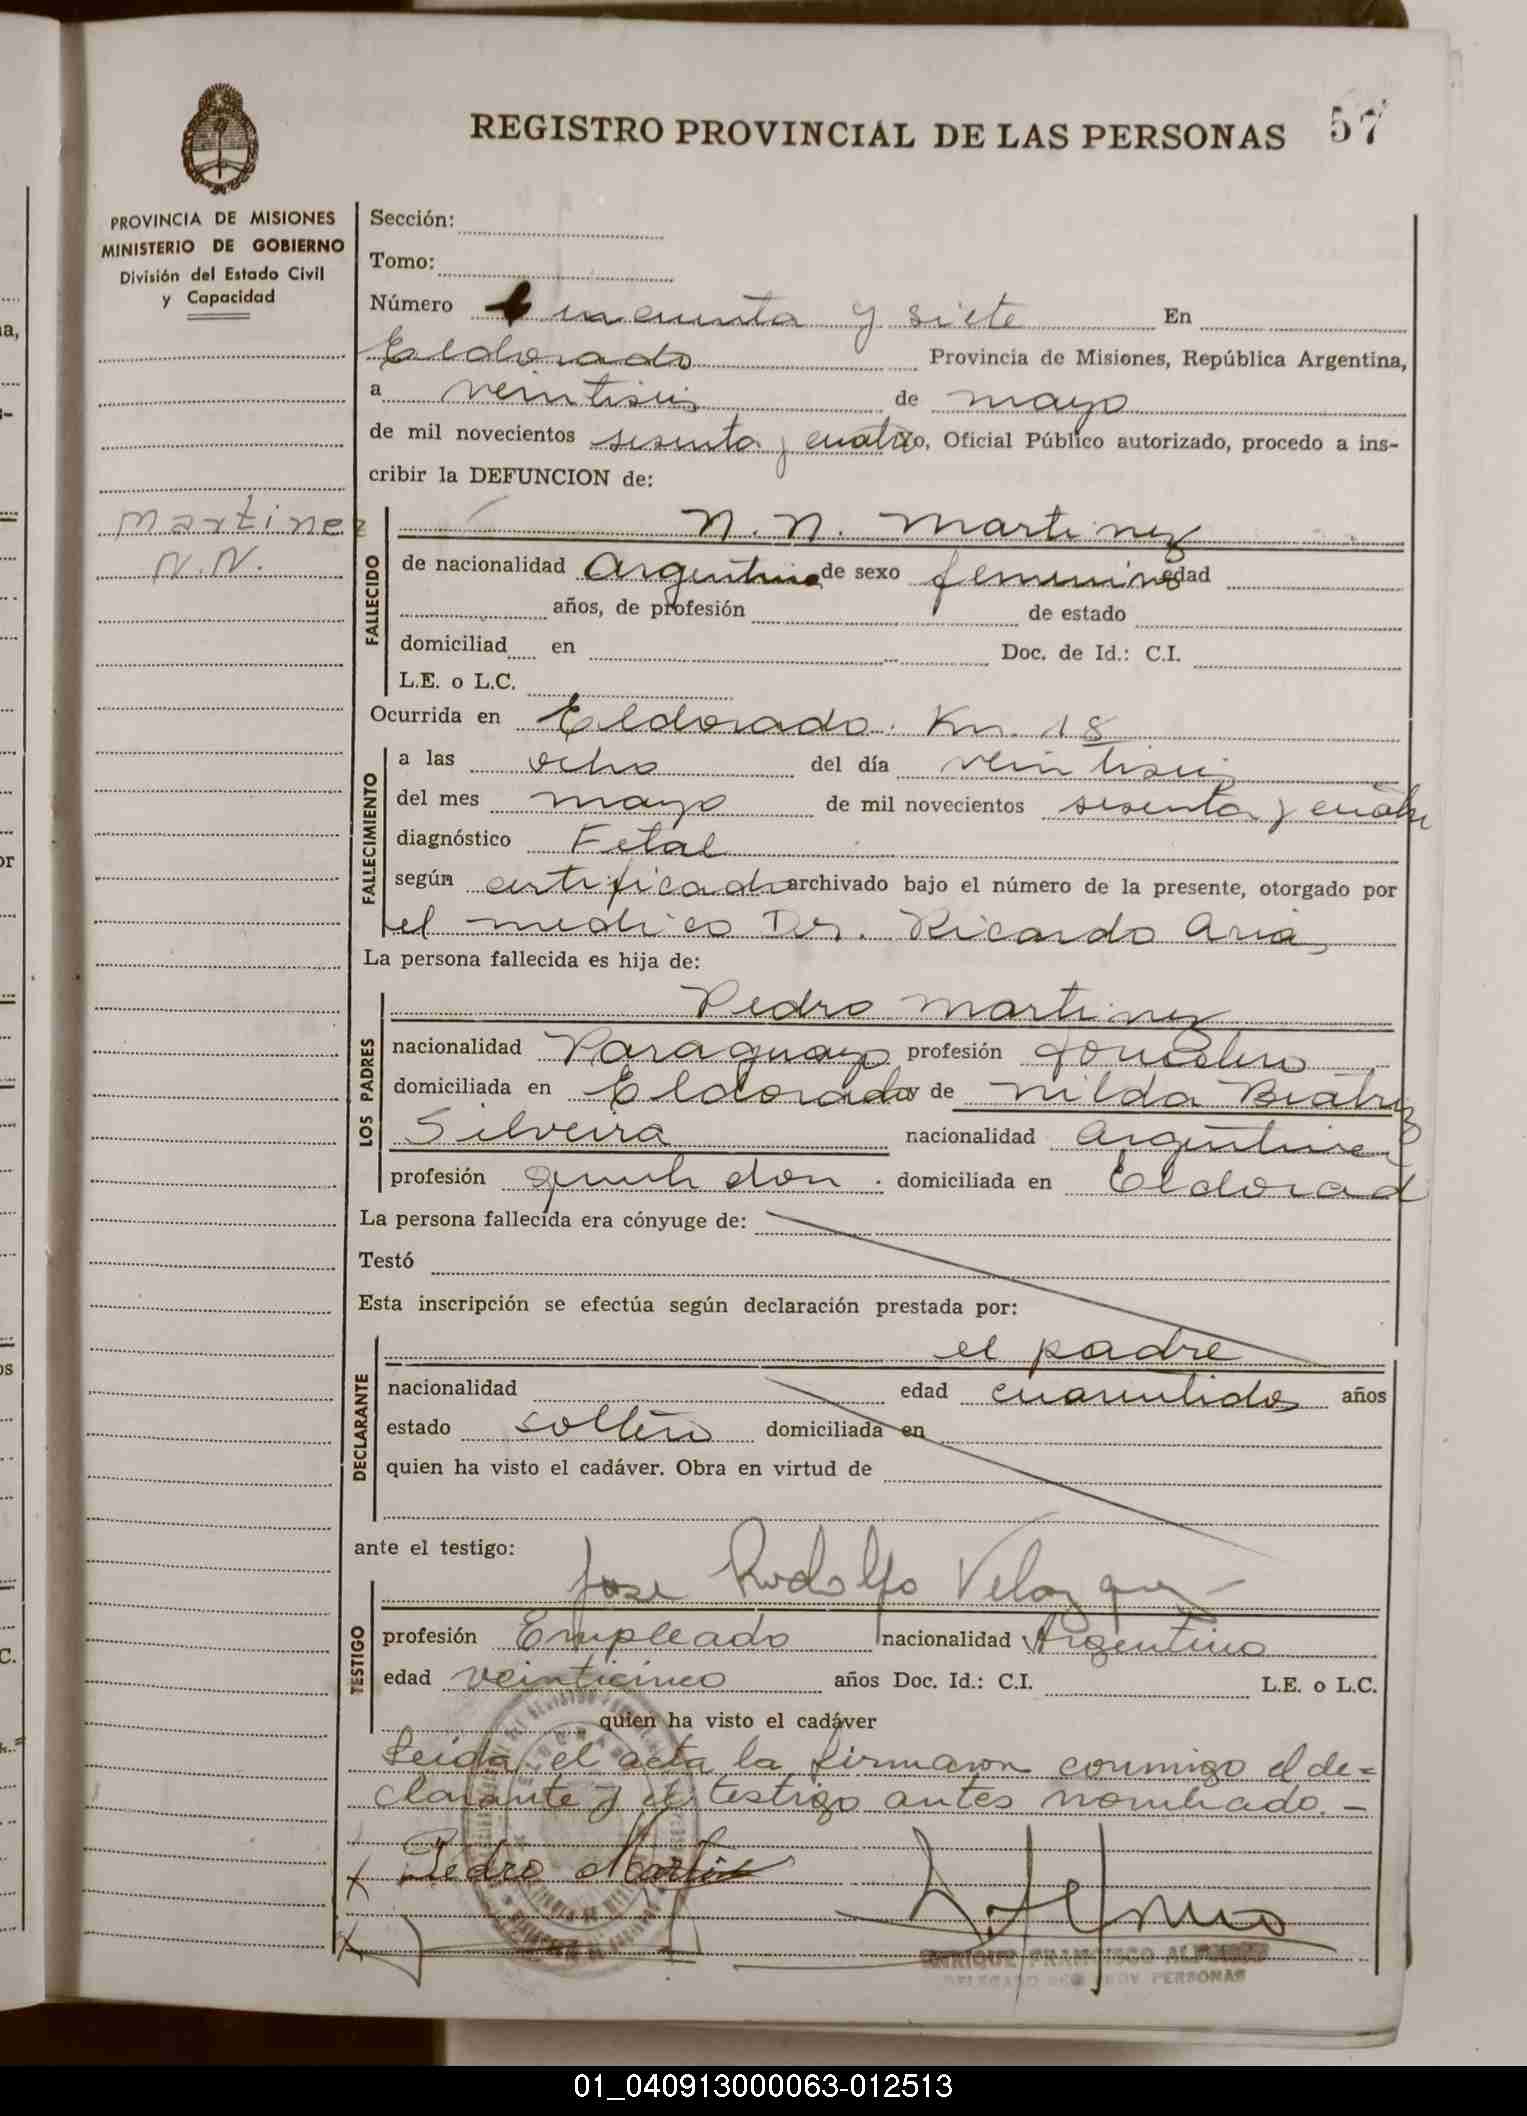 REGISTRO PROVINCIAL DE LAS PERSONAS 57
PROVINCIA DE MISIONES
MINISTERIO DE GOBIERNO
División del Estado Civil
y Capacidad
Martinez
N.N.
Sección:
Tomo:
Número cincuenta y siete En
Eldorado Provincia de Misiones, República Argentina,
a veintiseis de mayo
de mil novecientos sesenta y cuatro, Oficial Público autorizado, procedo a ins-
cribir la DEFUNCION de:
FALLECIDO
N. N. Martinez
de nacionalidad Argentina de sexo femenino edad
años, de profesión de estado
domiciliad en Doc. de Id.: C.I.
L.E. o L.C.
Ocurrida en Eldorado. Km. 18
FALLECIMIENTO
a las ocho del día veintiseis
del mes mayo de mil novecientos sesenta y cuatro
diagnóstico Fetal
según certificado archivado bajo el número de la presente, otorgado por
el medico Dr. Ricardo Arias
La persona fallecida es hija de:
LOS PADRES
Pedro Martinez
nacionalidad Paraguayo profesión
domiciliada en Eldorado y de Nilda Beatriz
Silveira nacionalidad Argentina
profesión domiciliada en Eldorado
La persona fallecida era cónyuge de:
Testó
Esta inscripción se efectúa según declaración prestada por:
DECLARANTE
el padre
nacionalidad edad cuarentidos años
estado soltero domiciliada en
quien ha visto el cadáver. Obra en virtud de
ante el testigo:
TESTIGO
Jose Rodolfo Velazquez
profesión Empleado nacionalidad Argentino
edad veinticinco años Doc. Id.: C.I. L.E. o L.C.
quien ha visto el cadáver
Leida el acta la firmaron conmigo el de=
clarante y el testigo antes nombrado.-
x Pedro Martinez
x
ENRIQUE FRANCISCO ALFONSO
01_040913000063-012513